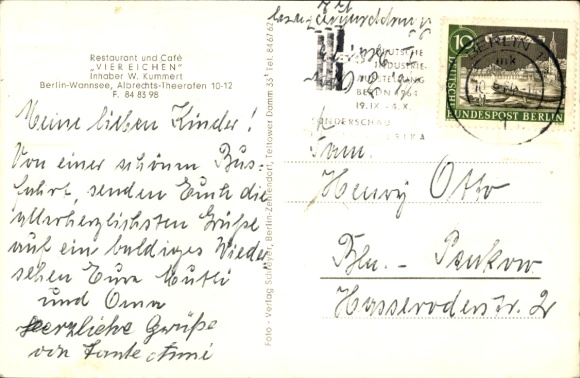 Restaurant und Café
„VIER EICHEN"
Inhaber W. Kummert
Berlin-Wannsee, Albrechts-Theerofen 10-12
F. 84 83 98
Meine lieben Kinder!
Von einer schönen Bus-
fahrt, senden Euch die
allerherzlichsten Grüße
auf ein baldiges Wieder
sehen Eure Mutti
und Oma
herzliche Grüße
von Tante Anni
Foto - Verlag Schleyer, Berlin-Zehlendorf, Teltower Damm 35 Tel. 846762
DEUTSCHE
INDUSTRIE-
AUSSTELLUNG
BERLIN 1964
19.IX.-4.X.
SONDERSCHAU
BERLIN
10
DEUTSCHE
BUNDESPOST BERLIN
Fam.
Henry Otto
Bln. - Pankow
Hasseroderstr. 2